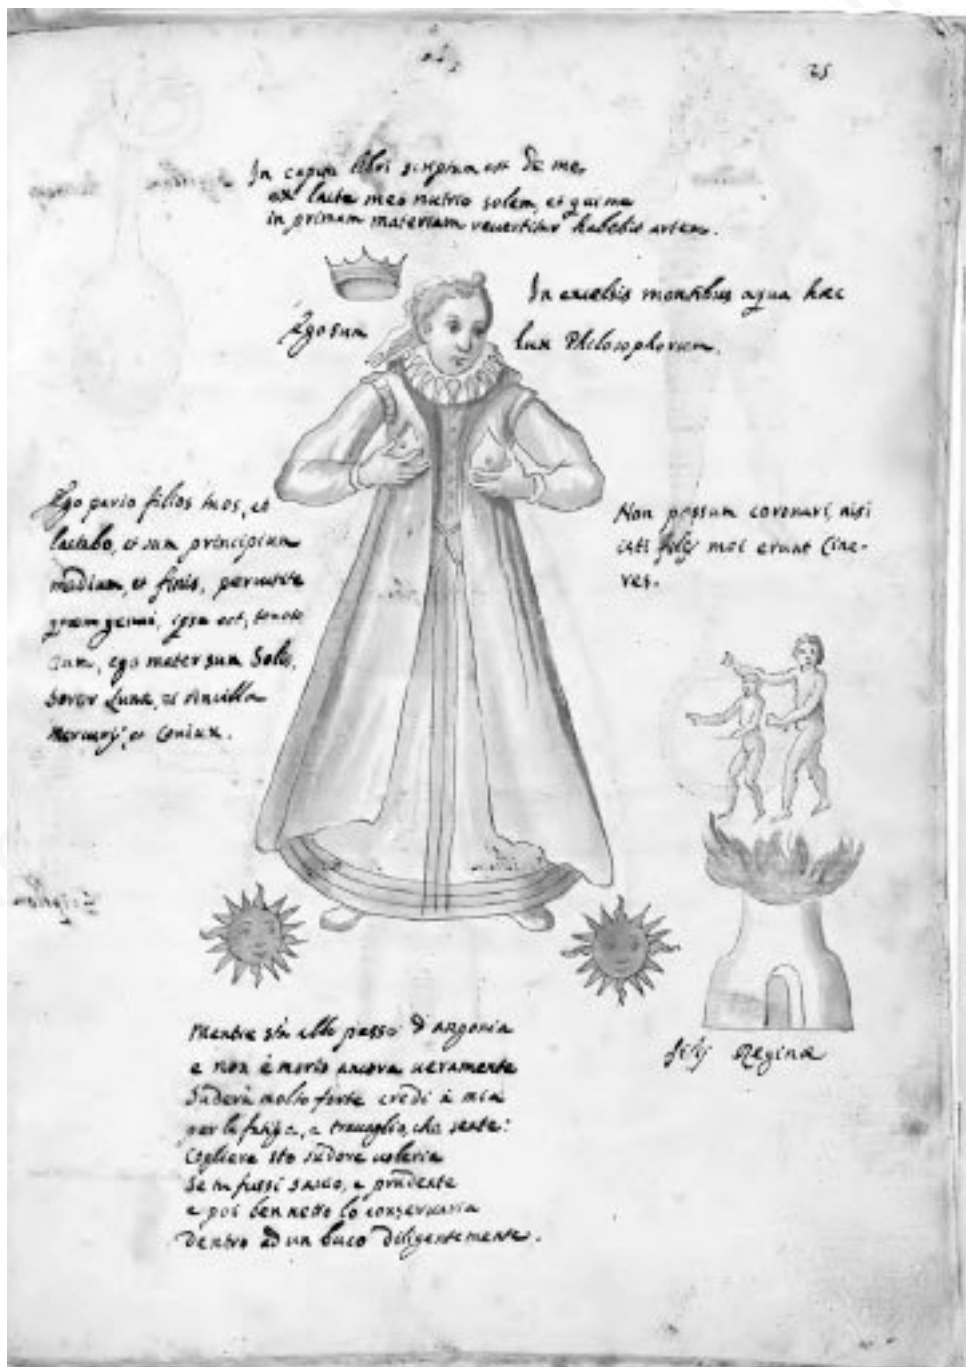 25
In capite libri scriptum est de me,
ex lacte meo nutrio solem, et qui me
in primam materiam revertitur habebit artem.
Ego sum
In excelsis montibus aqua hæc
lux Philosophorum.
Ego pario filios meos, et
lactabo, et sum principium
medium, et finis, percutite
genui, ipsa est,
ego mater sum Solis,
Soror Lunæ, et Ancilla
Mercurij, et Coniux.
Non possum coronari, nisi
isti filij mei erunt Cine-
res.
filij Reginæ
Mentre sta allo passo d'angonia
e non è morto ancora veramente
Suderà molto forte credi à mia
per la fatiga, e travaglio, che sente:
Cogliere sto sudore voleria
Se tu fussi savio, e prudente
e poi ben netto lo conservaria
Dentro ad un buco diligentemente.